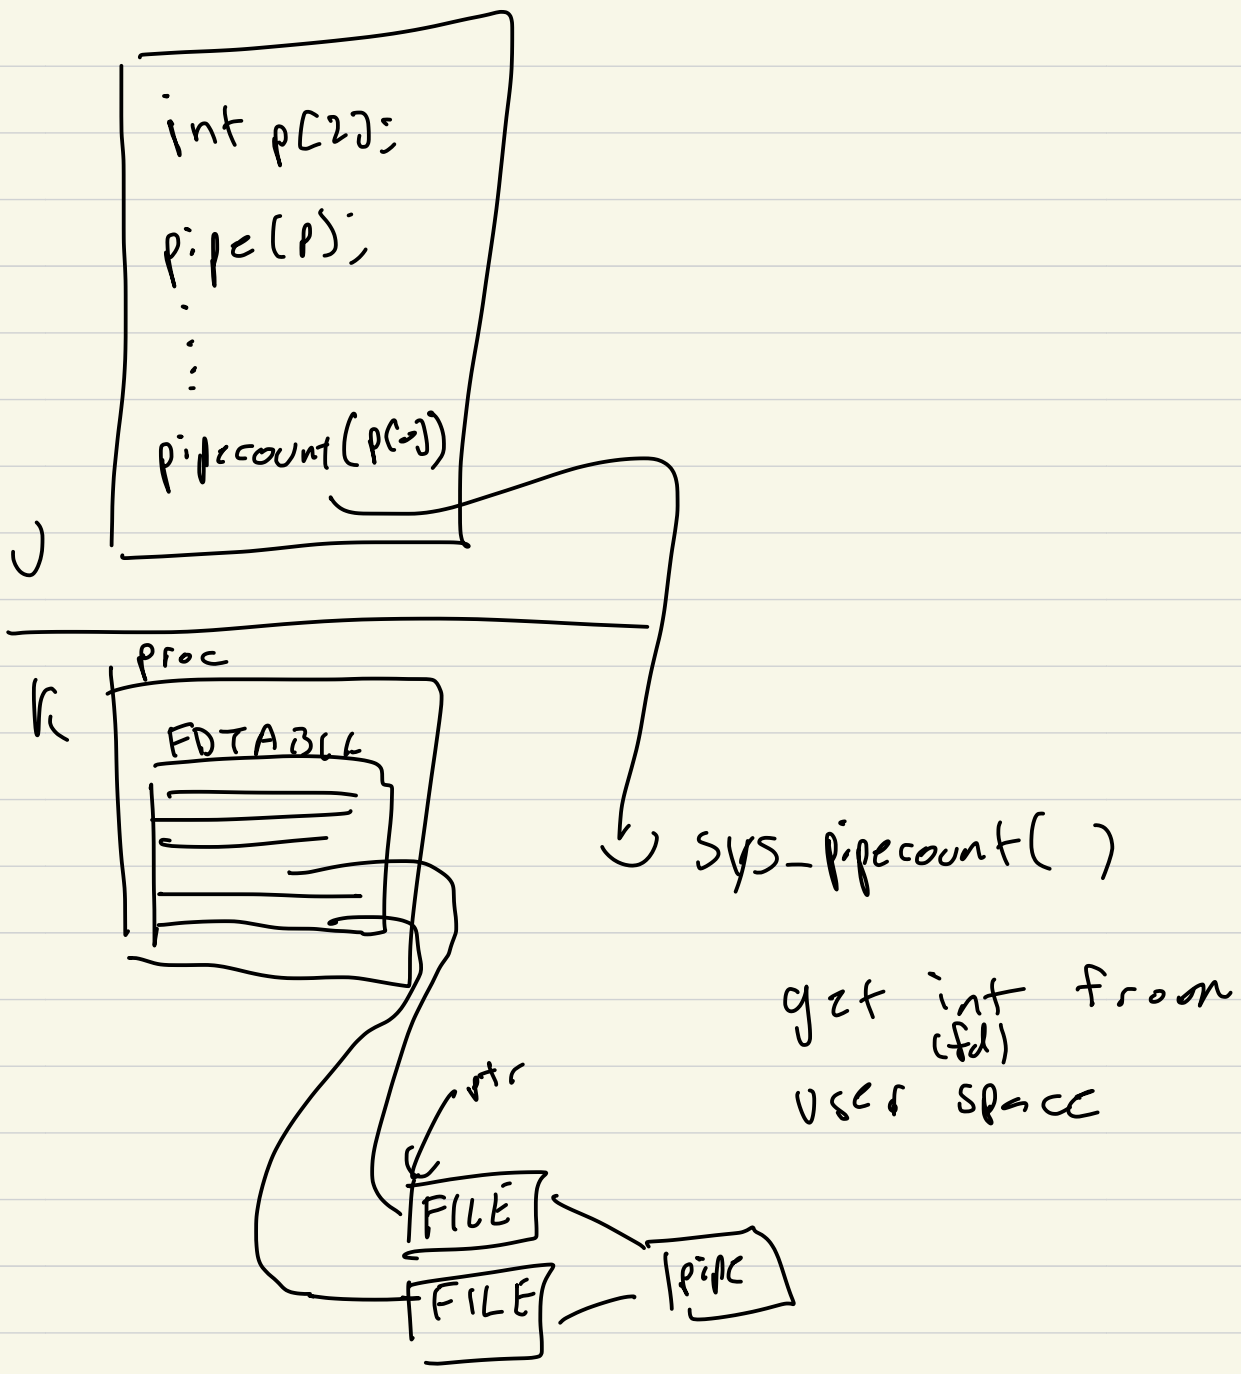 int p[2];
pipe(p);
pipecount(p[0])
U
K
proc
FDTABLE
sys_pipecount( )
get int from
(fd)
user space
ptr
FILE
pipe
FILE